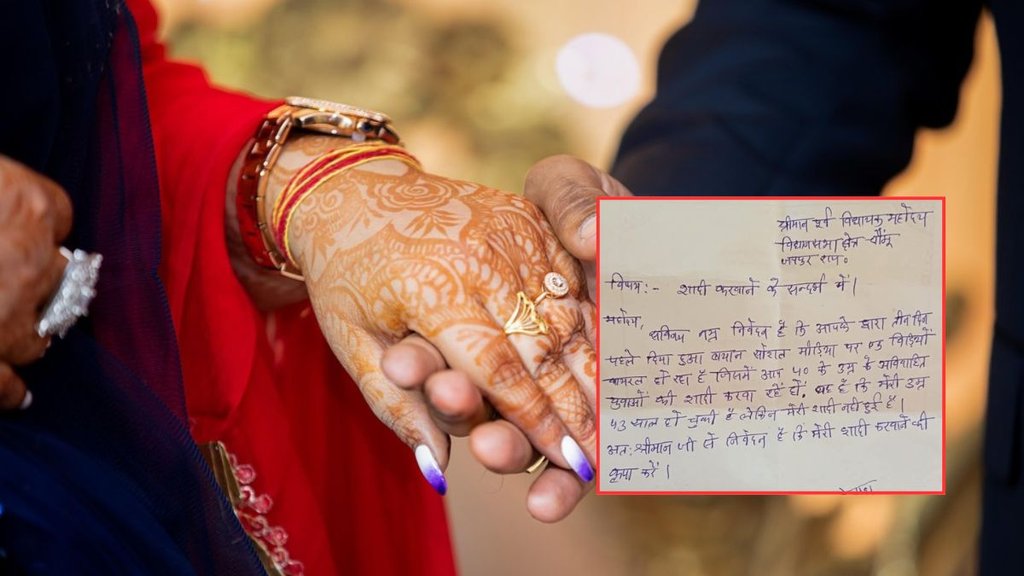 श्रीमान पूर्व विधायक महोदय
विधानसभा क्षेत्र चौमूं
जयपुर राज०
विषय:- शादी करवाने के सन्दर्भ में।
महोदय,
सविनय नम्र निवेदन है कि आपके द्वारा तीन दिन
पहले दिया हुआ बयान सोशल मीडिया पर वो विडियों
वायरल हो रहा है जिसमें आप 40 के उम्र के अविवाहित
युवाओं की शादी करवा रहें हों, वह है कि मेरी उम्र
43 साल हो चुकी है लेकिन मेरी शादी नहीं हुई है।
अत: श्रीमान जी से निवेदन है कि मेरी शादी करवाने की
कृपा करें।